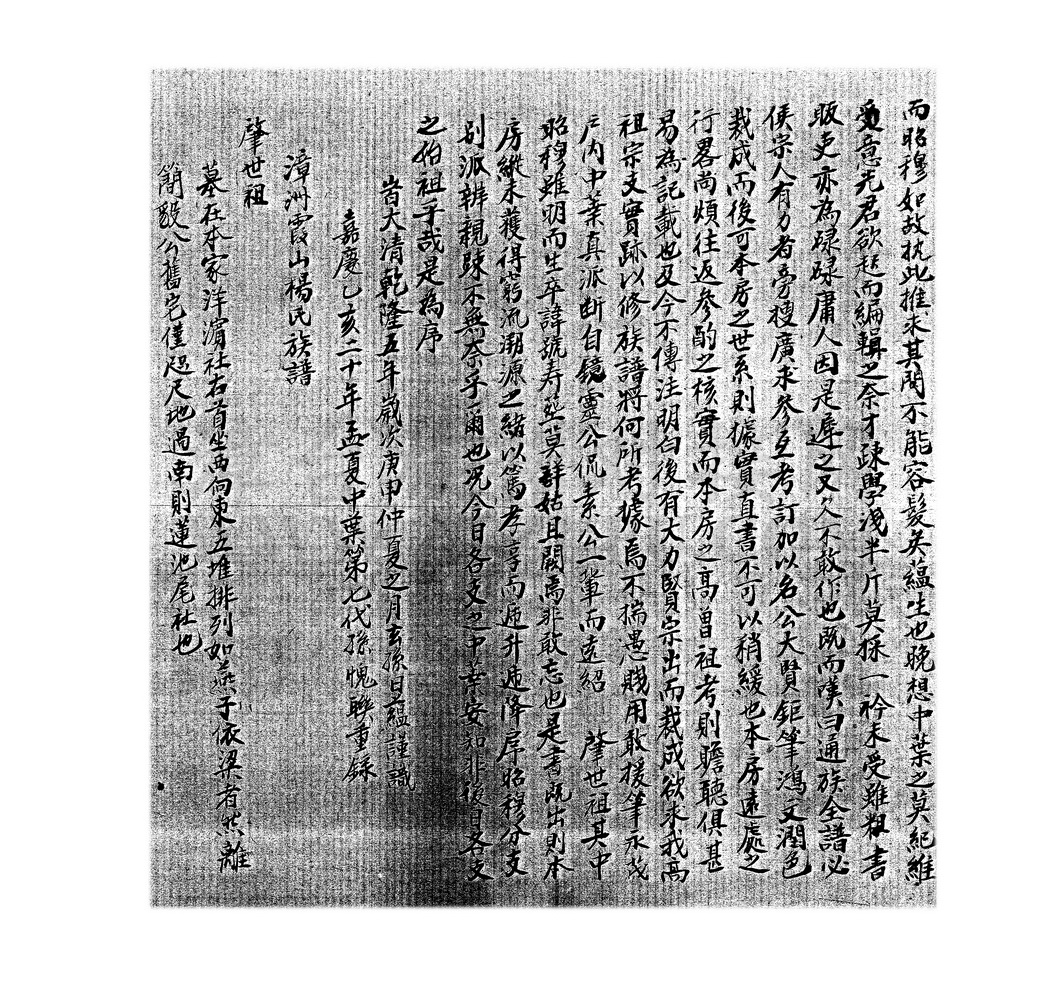 而昭穆如故抗此推求其間不能容髮矣蘊生也晚想中葉之莫紀維
受意先君欲起而編輯之奈才疎學淺半斤莫採一衿未受雖粗書
販吏亦為碌碌庸人因是遲之又久不敢作也既而嘆曰通族全譜必
俟宗人有力者旁搜廣求參互考訂加以名公大賢鉅筆鴻文潤色
裁成而後可本房之世系則據實直書不可以稍緩也本房遠處之
行畧尚煩往返參酌之核實而本房之高曾祖考則瞻聽俱甚
易為記載也及今不傳注明白後有大力賢宗出而裁成欲求我高
祖宗文實跡以修族譜將何所考據焉不揣愚賤用敢援筆承茂
戶內中葉真派断自鏡靈公侃素公一輩而遠紹 肇世祖其中
昭穆雖明而生卒諱號寿塟莫詳姑且闕焉非敢忘也是書既出則本
房縱未獲得窮流溯源之緒以篤孝享而遞升遞降序昭穆分支
別派辨親疎不無奈乎爾也况今日各支之中葉安知非後日各支
之始祖乎哉是為序
旹大清乾隆五年歲次庚申仲夏之月玄孫日蘊謹識
嘉慶乙亥二十年孟夏中葉第七代孫愧聯重録
漳洲霞山楊氏族譜
肇世祖
墓在本家洋濵社右首坐西向東五堆排列如燕子依梁者然離
簡毅公舊宅僅咫尺地過南則蓮池尾社也